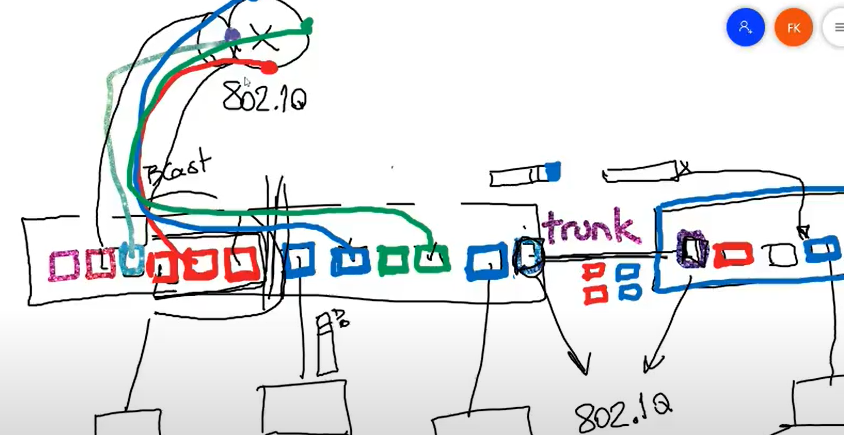 FK
802.1Q
BCast
trunk
802.1Q